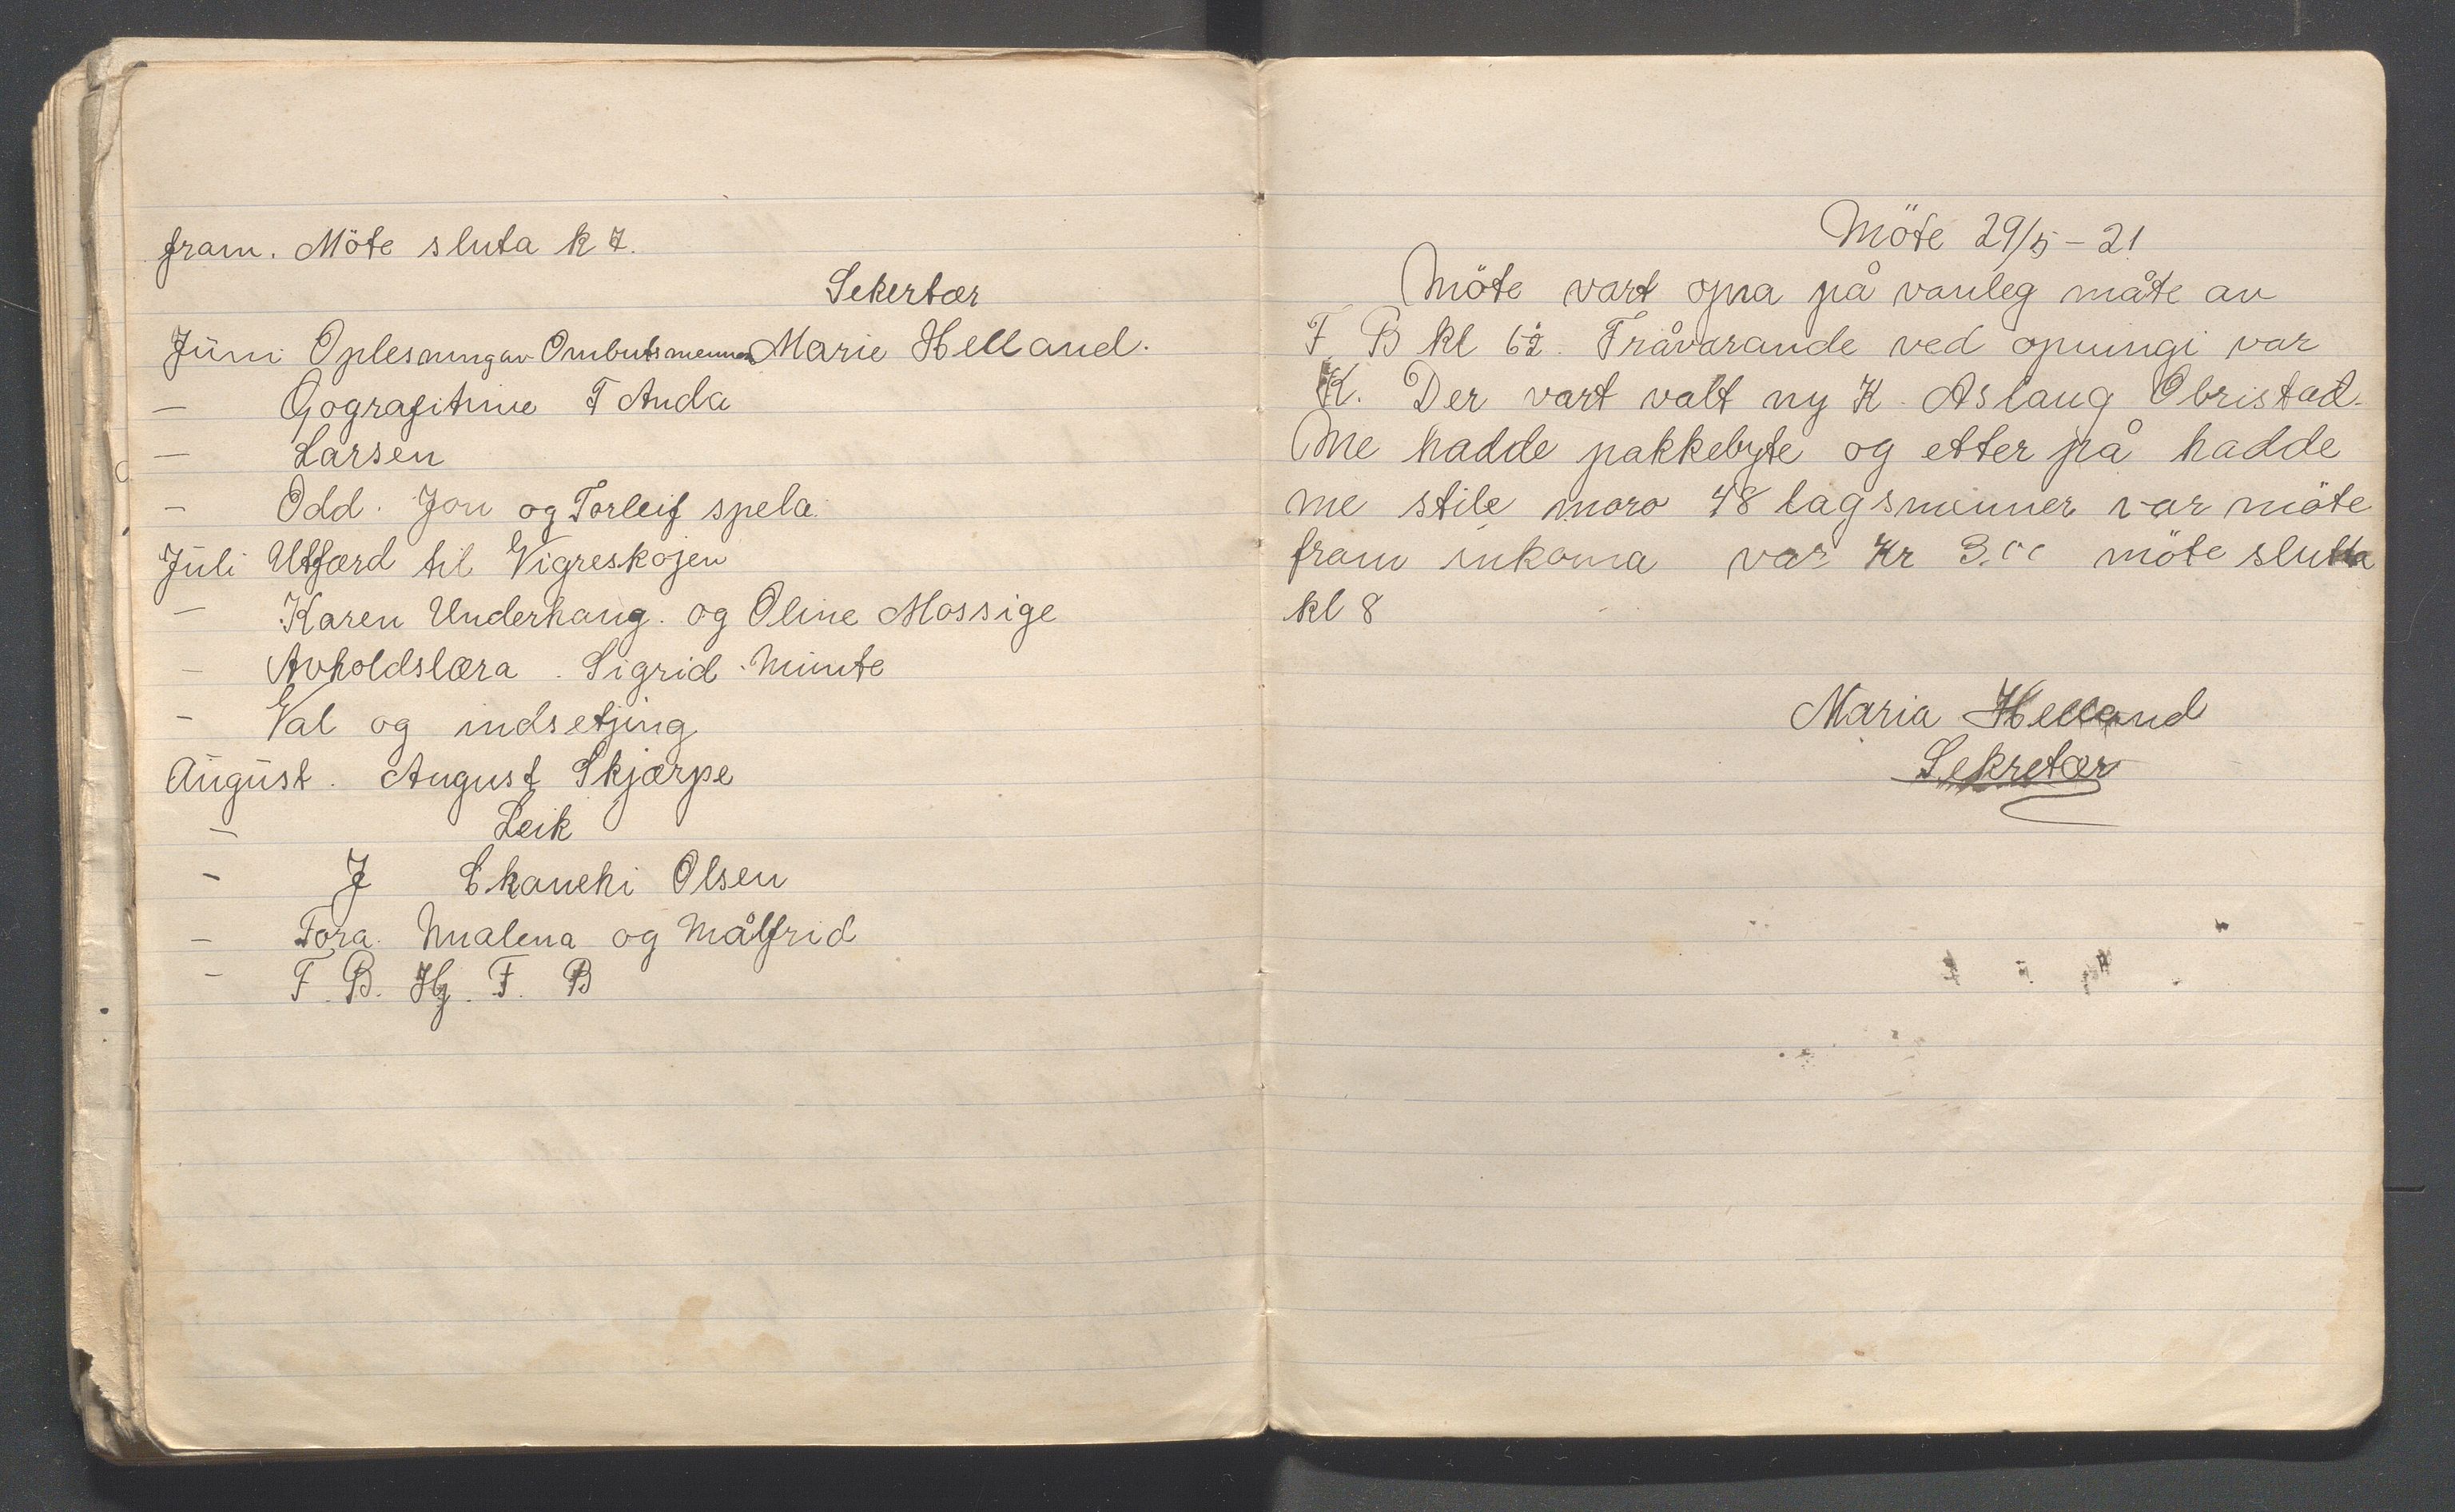 fram. Möte sluta k 7.
Sekertær
Juni Oplesning av Ombutsmennen Marie Helland.
— Gografitime T Anda
— Larsen
— Odd. Jon og Torleif spela.
Juli Utfærd til Vigreskojen
— Karen Underhaug. og Oline Mossige
— Avholdslæra. Sigrid. Minte
— Val og indsetjing
August. August Skjærpe
— Leik
— J Olsen
— Tora. og Målfrid
— F. B. Hj. F. B
Möte 29/5 - 21
Möte vart opna på vanleg måte av
F B kl 6½. Fråvarande ved opningi var
K. Der vart valt ny K. Aslaug Obristad.
Me hadde pakkebyte og etter på hadde
me stile moro 48 lagsmenner var möte
fram inkoma var Kr 3.00 möte slutta
kl 8
Maria Helland
Sekretær